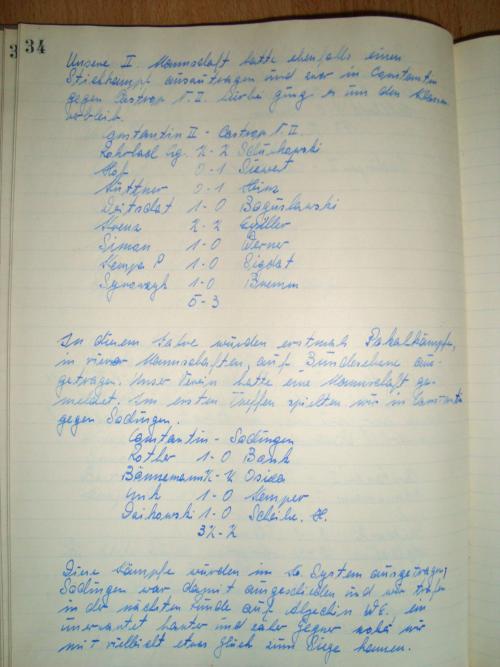 34
Unsere II. Mannschaft hatte ebenfalls einen
Stichkampf auszutragen und zwar in Constantin
gegen Castrop T.II. Hierbei ging es um den Klassen
verbleib.
Constantin II - Castrop T. II
½-½
Hof 0-1 Siewert
Hüttner 0-1 Heinz
1-0 Boguslawski
Krenz ½-½
Simon 1-0 Werner
Kemper P 1-0 Sigdat
1-0 Bremm
5-3
In diesem Jahre wurden erstmals Pokalkämpfe,
in vierer Mannschaften, auf Bundesebene aus-
getragen. Unser Verein hatte eine Mannschaft ge-
meldet. Im ersten Treffen spielten wir in Constantin
gegen Sodingen.
Constantin - Sodingen
Rother 1-0 Bank
Bännemann ½-½
1-0 Kemper
Daikowski 1-0 Scheibe. H.
3½-½
Diese Kämpfe wurden im K.o. System ausgetragen,
Sodingen war damit ausgeschieden und wir trafen
in der nächsten Runde auf W.E. ein
unerwartet harter und zäher Gegner wobei wir
mit vielleicht etwas Glück zum Siege kamen.